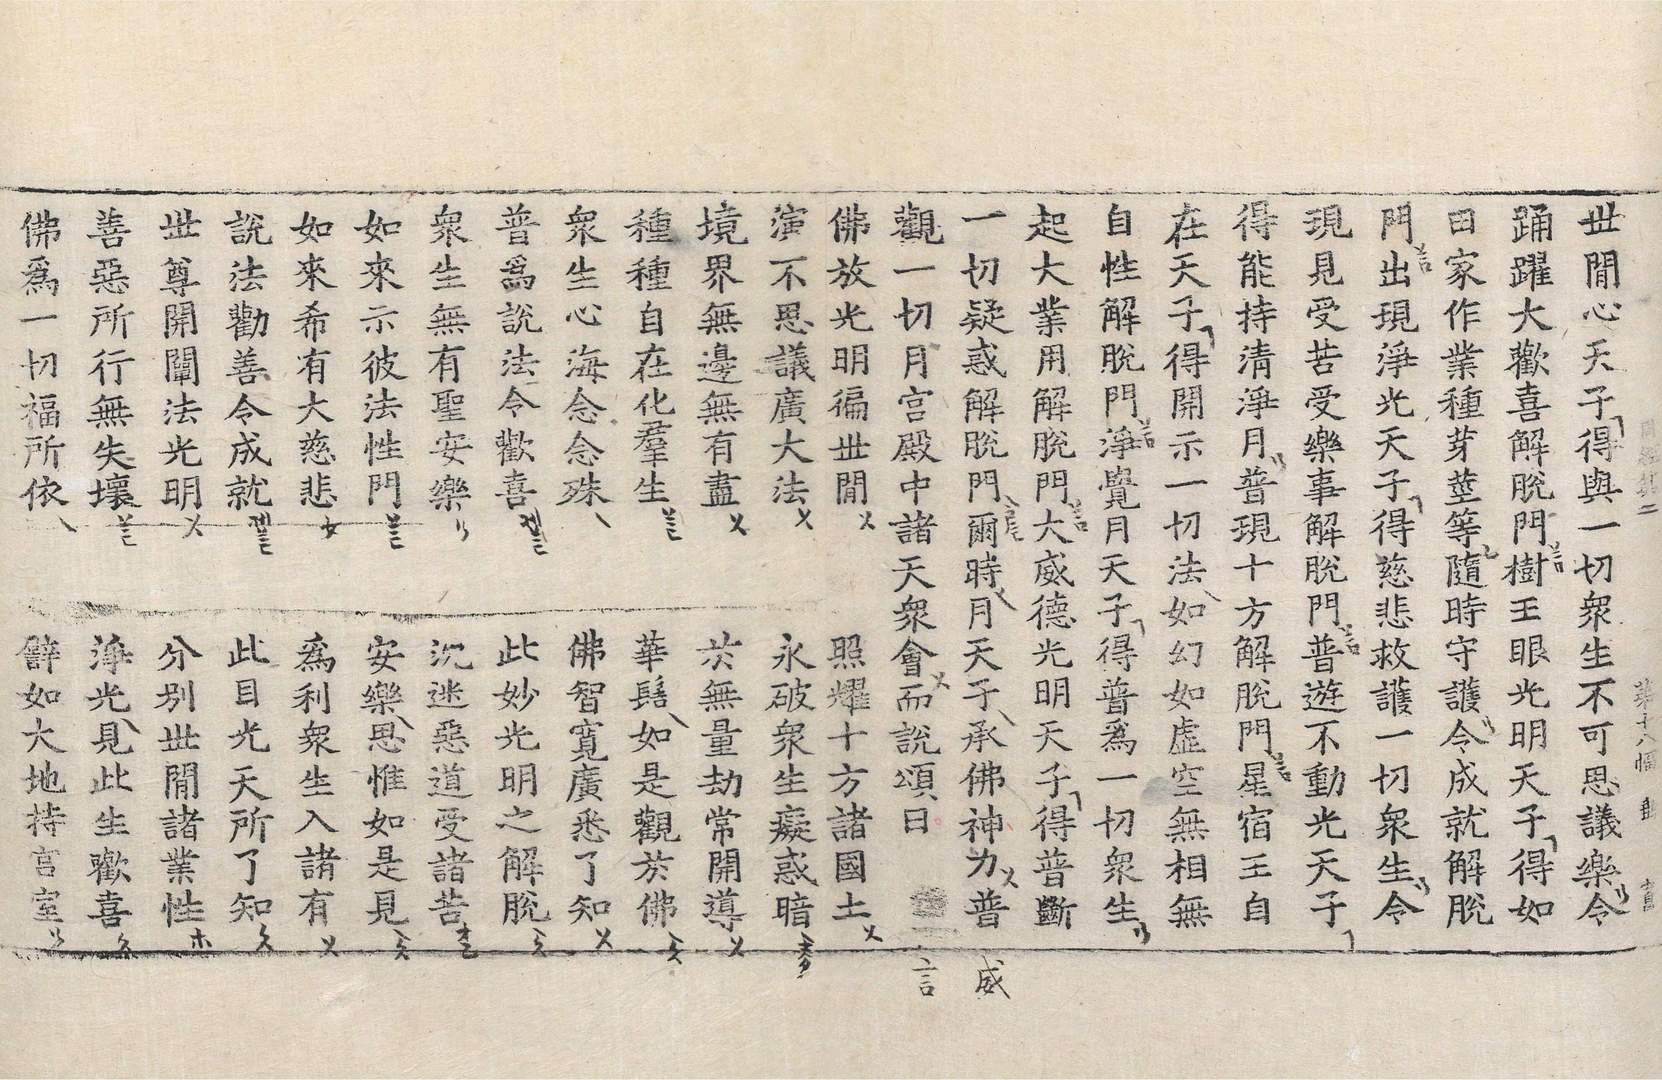 世閒心天子得與一切衆生不可思議樂令
踊躍大歡喜解脫門樹王眼光明天子得如
田家作業種芽莖等隨時守護令成就解脫
門出現淨光天子得慈悲救護一切衆生令
現見受苦受樂事解脫門普遊不動光天子
得能持清淨月普現十方解脫門星宿王自
在天子得開示一切法如幻如虛空無相無
自性解脫門淨覺月天子得普爲一切衆生
起大業用解脫門大威德光明天子得普斷
一切疑惑解脫門爾時月天子承佛神力普
威
觀一切月宮殿中諸天衆會而說頌曰
言
佛放光明徧世閒 照耀十方諸國土
演不思議廣大法 永破衆生癡惑暗
境界無邊無有盡 於無量劫常開導
種種自在化羣生 華髻如是觀於佛
衆生心海念念殊 佛智寬廣悉了知
普爲說法令歡喜 此妙光明之解脫
衆生無有聖安樂 沈迷惡道受諸苦
如來示彼法性門 安樂思惟如是見
如來希有大慈悲 爲利衆生入諸有
說法勸善令成就 此目光天所了知
世尊開闡法光明 分別世閒諸業性
善惡所行無失壞 淨光見此生歡喜
佛爲一切福所依 譬如大地持宮室